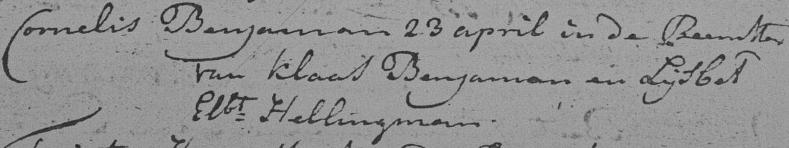 Cornelis Benjaman 23 april in de Beemster
van Klaas Benjaman en Lijsbet
Elbt: Hellingman.